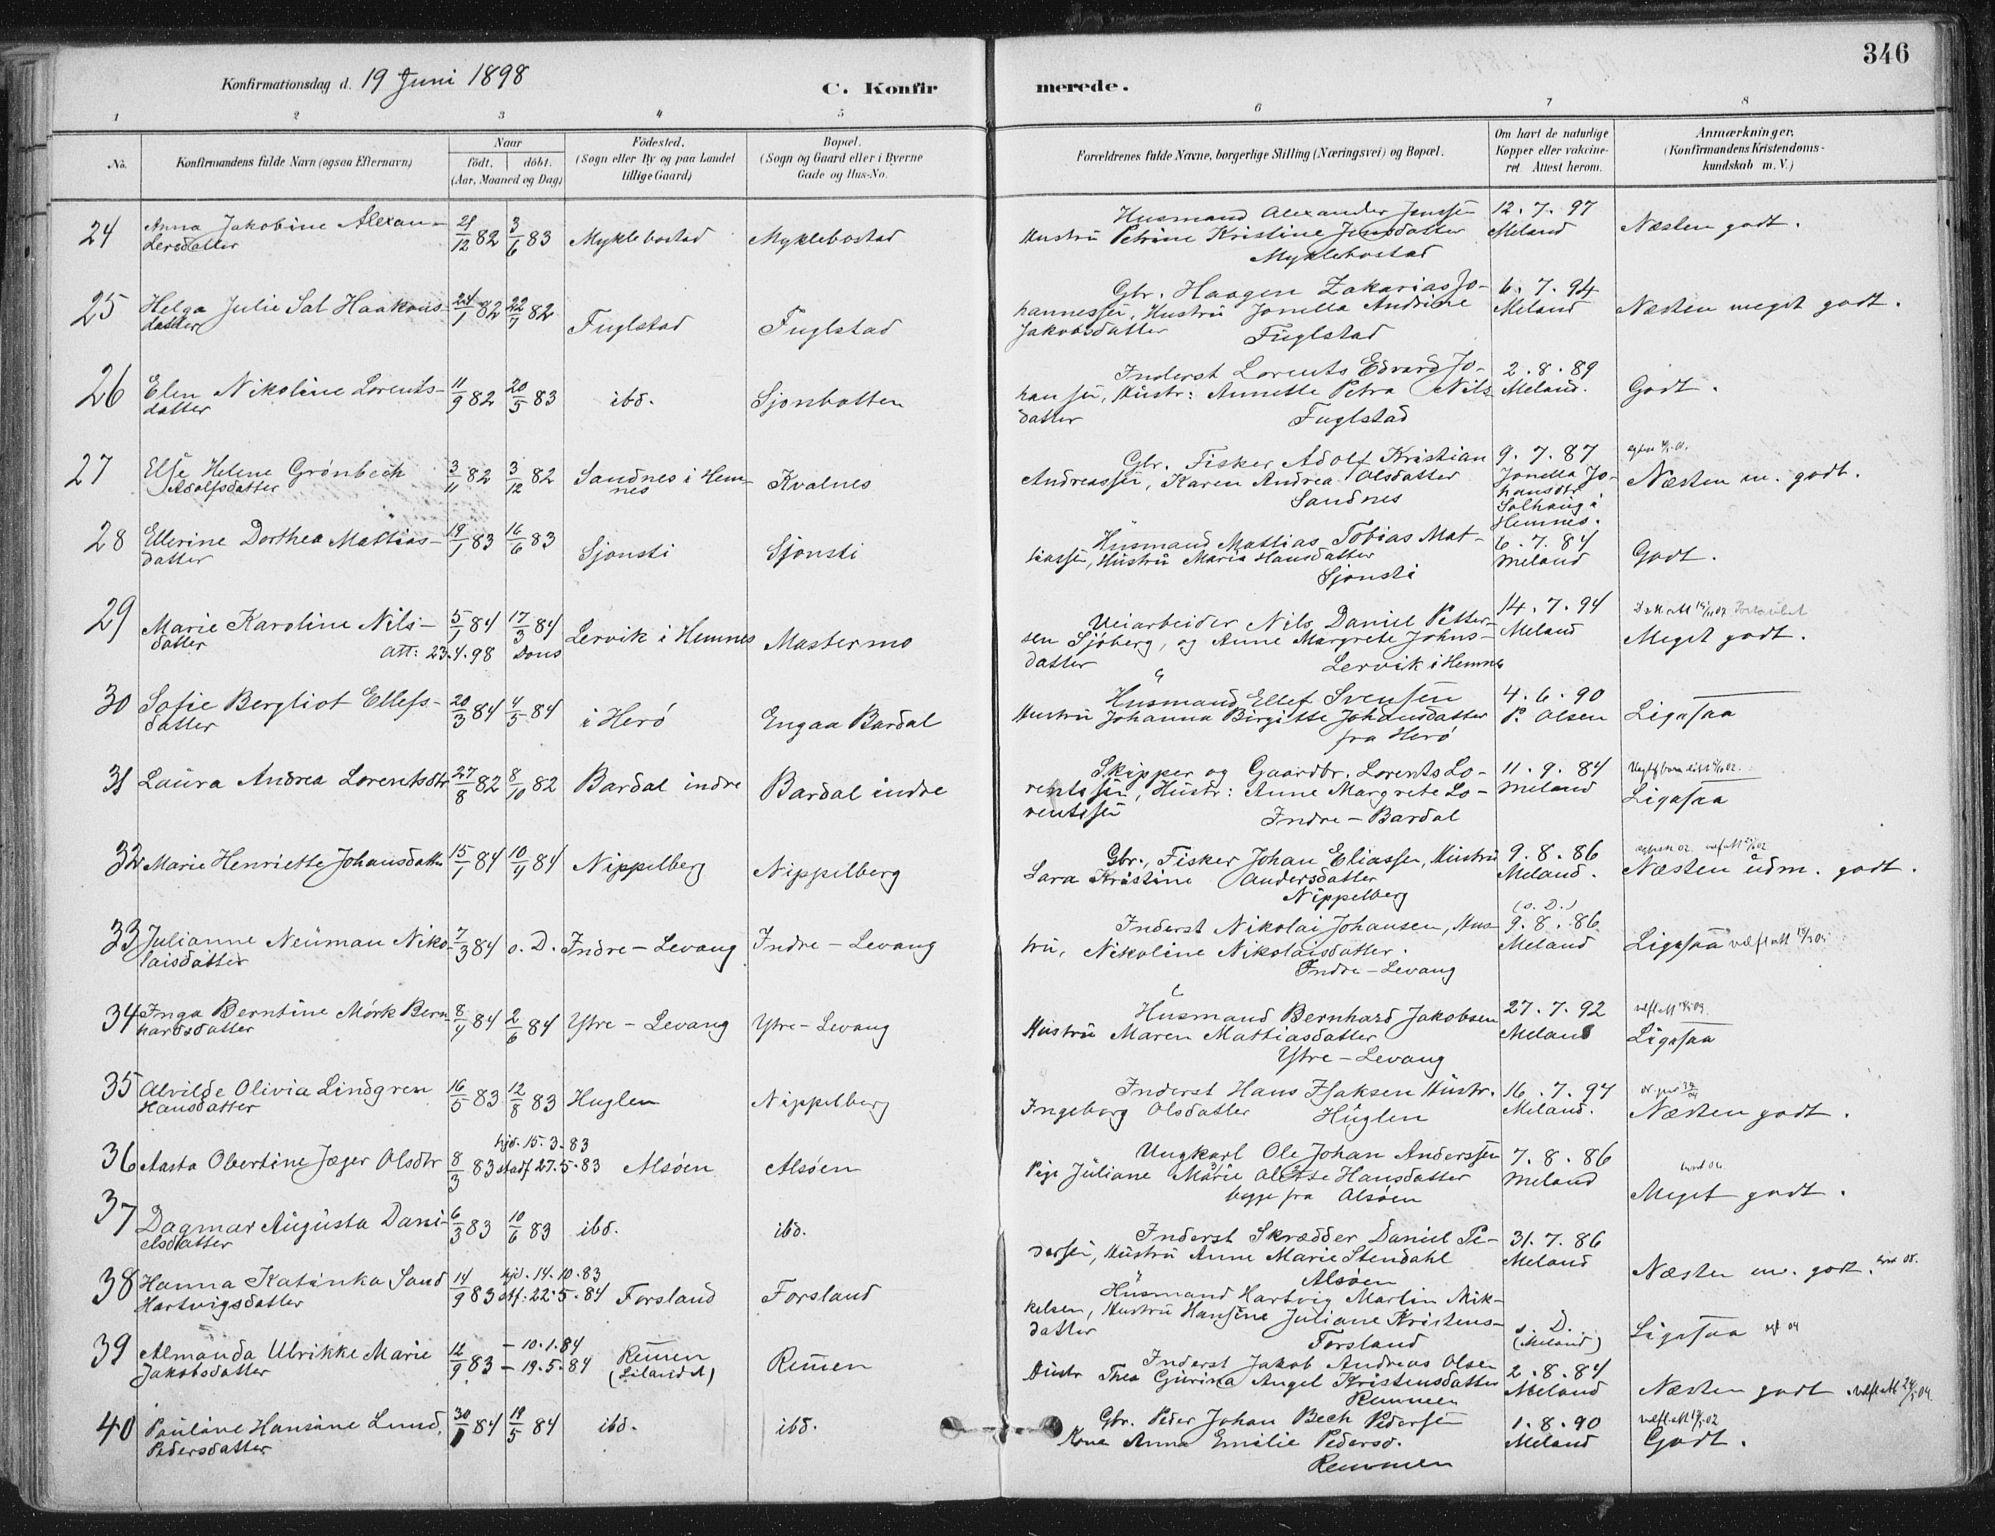 346
Konfirmationsdag d. 19 Juni 1898
C. Konfir
merede.
1 2 3 4 5 6 7 8
No.
Konfirmandens fulde Navn (ogsaa Efternavn)
Naar
födt. döbt.
(Aar, Maaned og Dag)
Födested.
(Sogn eller By og paa Landet
tillige Gaard)
Bopæl.
(Sogn og Gaard eller i Byerne
Gade og Hus-No.
Forældrenes fulde Navne, borgerlige Stilling (Næringsvei) og Bopæl.
Om havt de naturlige
Kopper eller vakcine-
ret. Attest herom.
Anmærkninger.
(Konfirmandens Kristendoms-
kundskab m. V.)
24 Anna Jakobine Alexan-
dersdatter
21/12 82 3/6 83 Myklebostad Myklebostad
Husmand Alexander Jenssen
Hustru Petrine Kristine Jensdatter
Myklebostad
12.7.97
Meland
Næsten godt.
25 Helga Julie Sal Haakons-
datter
24/1 82 22/7 82 Fuglstad Fuglstad
Gbr. Haagen Zakarias Jo-
hannessen, Hustru Jonella Andrine
Jakobsdatter
Fuglstad
6.7.94
Meland
Næsten meget godt.
26 Elen Nikoline Lorents-
datter
11/9 82 20/5 83 ibd. Sjonbotten
Inderst Lorents Edvard Jo-
hansen, Hustr: Annette Petra Nils
datter
Fuglstad
2.8.89
Meland.
Godt.
27 Else Helene Grønbech
Adolfsdatter
3/11 82 3/12 82 Sandnes i Hem-
nes
Kvalnes
Gbr. Fisker Adolf Kristian
Andreassen, Karen Andrea Olsdatter
Sandnes
9.7.87
Jonella Jo-
hansdtr
Solhaug i
Hemnes.
Næsten m. godt.
28 Ellerine Dorthea Mattias-
datter
19/1 83 16/6 83 Sjonsti Sjonsti
Husmand Mattias Tobias Mat-
tiassen, Hustru Maria Hansdatter
Sjonsti
6.7.84
Meland
Godt.
29 Marie Karoline Nils-
datter
att: 23.4.98
5/1 84 17/3 84 Lervik i Hemnes Mastermo
Veiarbeider Nils Daniel Petter-
sen Sjöberg, og Anne Margrete Johns-
datter
Lervik i Hemnes
14.7.94
Meland
Meget godt.
30 Sofie Bergliot Ellefs-
datter
20/3 84 4/5 84 i Herö Engaa Bardal
Husmand Ellef Svensen
Hustru Johanna Birgitte Johansdatter
fra Herö
4.6.90
P. Olsen
Ligesaa
31 Laura Andrea Lorentsdtr
27/8 82 8/10 82 Bardal indre Bardal indre
Skipper og Gaardbr. Lorents Lo-
rentssen, Hustr: Anne Margrete Lo-
rentsen
Indre-Bardal
11.9.84
Meland
Ligesaa
32 Marie Henriette Johansdatter
15/1 84 10/4 84 Nippelberg Nippelberg
Gbr., Fisker Johan Eliassen, Hustru
Lara Kristine Andersdatter
Nippelberg
9.8.86
Meland.
Næsten udm. godt.
33 Julianne Neuman Niko-
laisdatter
7/3 84 s. D. Indre-Levang Indre-Levang
Inderst Nikolai Johansen, Hus-
tru, Nikoline Nikolaisdatter.
Indre-Levang
(s. D.)
9.8.86
Meland
Ligesaa
34 Inga Berntine Mørk Bern-
hardsdatter
8/4 84 2/6 84 Ytre-Levang Ytre-Levang
Husmand Bernhard Jakobsen
Hustru Maren Mattiasdatter
Ytre-Levang
27.7.92
Meland
Ligesaa
35 Alvilde Olivia Lindgren
Hansdatter
16/5 83 12/8 83 Huglen Nippelberg
Inderst Hans Isaksen Hustr.
Ingeborg Olsdatter Huglen
16.7.97
Meland.
Næsten godt.
36 Aasta Obertine Jæger Olsdtr
8/3 83 hjd. 15.3.83
stadf 27.5.83 Alsöen Alsöen
Ungkarl Ole Johan Anderssen
Pige Juliane Marie Olette Hansdatter
begge fra Alsöen
7.8.86
Meland
Meget godt.
37 Dagmar Augusta Dani-
elsdatter
6/3 83 10/6 83 ibd. ibd.
Inderst Skrædder Daniel Pe-
dersen, Hustru Anne Marie Stendahl
Alsöen
31.7.86
Meland
Næsten m. godt.
38 Hanna Katinka Sand
Hartvigsdatter
14/9 83 hjd. 14.10.83
stf: 22.5.84 Forsland Forsland
Husmand Hartvig Martin Mik-
kelsen, Hustru Hansine Juliane Kristens-
datter
Forsland
s. D.
(Meland)
Ligesaa
39 Almanda Ulrikke Marie
Jakobsdatter
12/9 83 - 10.1.84
- 19.5.84 Remmen
Remmen
Inderst Jakob Andreas Olsen
Hustr Thea Gjurina Angel Kristensdatter
Remmen
2.8.84
Meland
Næsten godt
40 Pauline Hansine Lund,
Pedersdatter
84 19/5 84 ibd. ibd.
Gbr. Peder Johan Bech Pedersen
Kone Anna Emilie Pedersd.
Remmen
1.8.90
Meland
Godt.